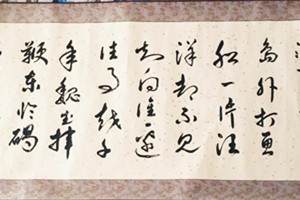 岛外打鱼
船一片汪
洋都不见
知向谁边
往事越千
年魏武挥
鞭东临碣